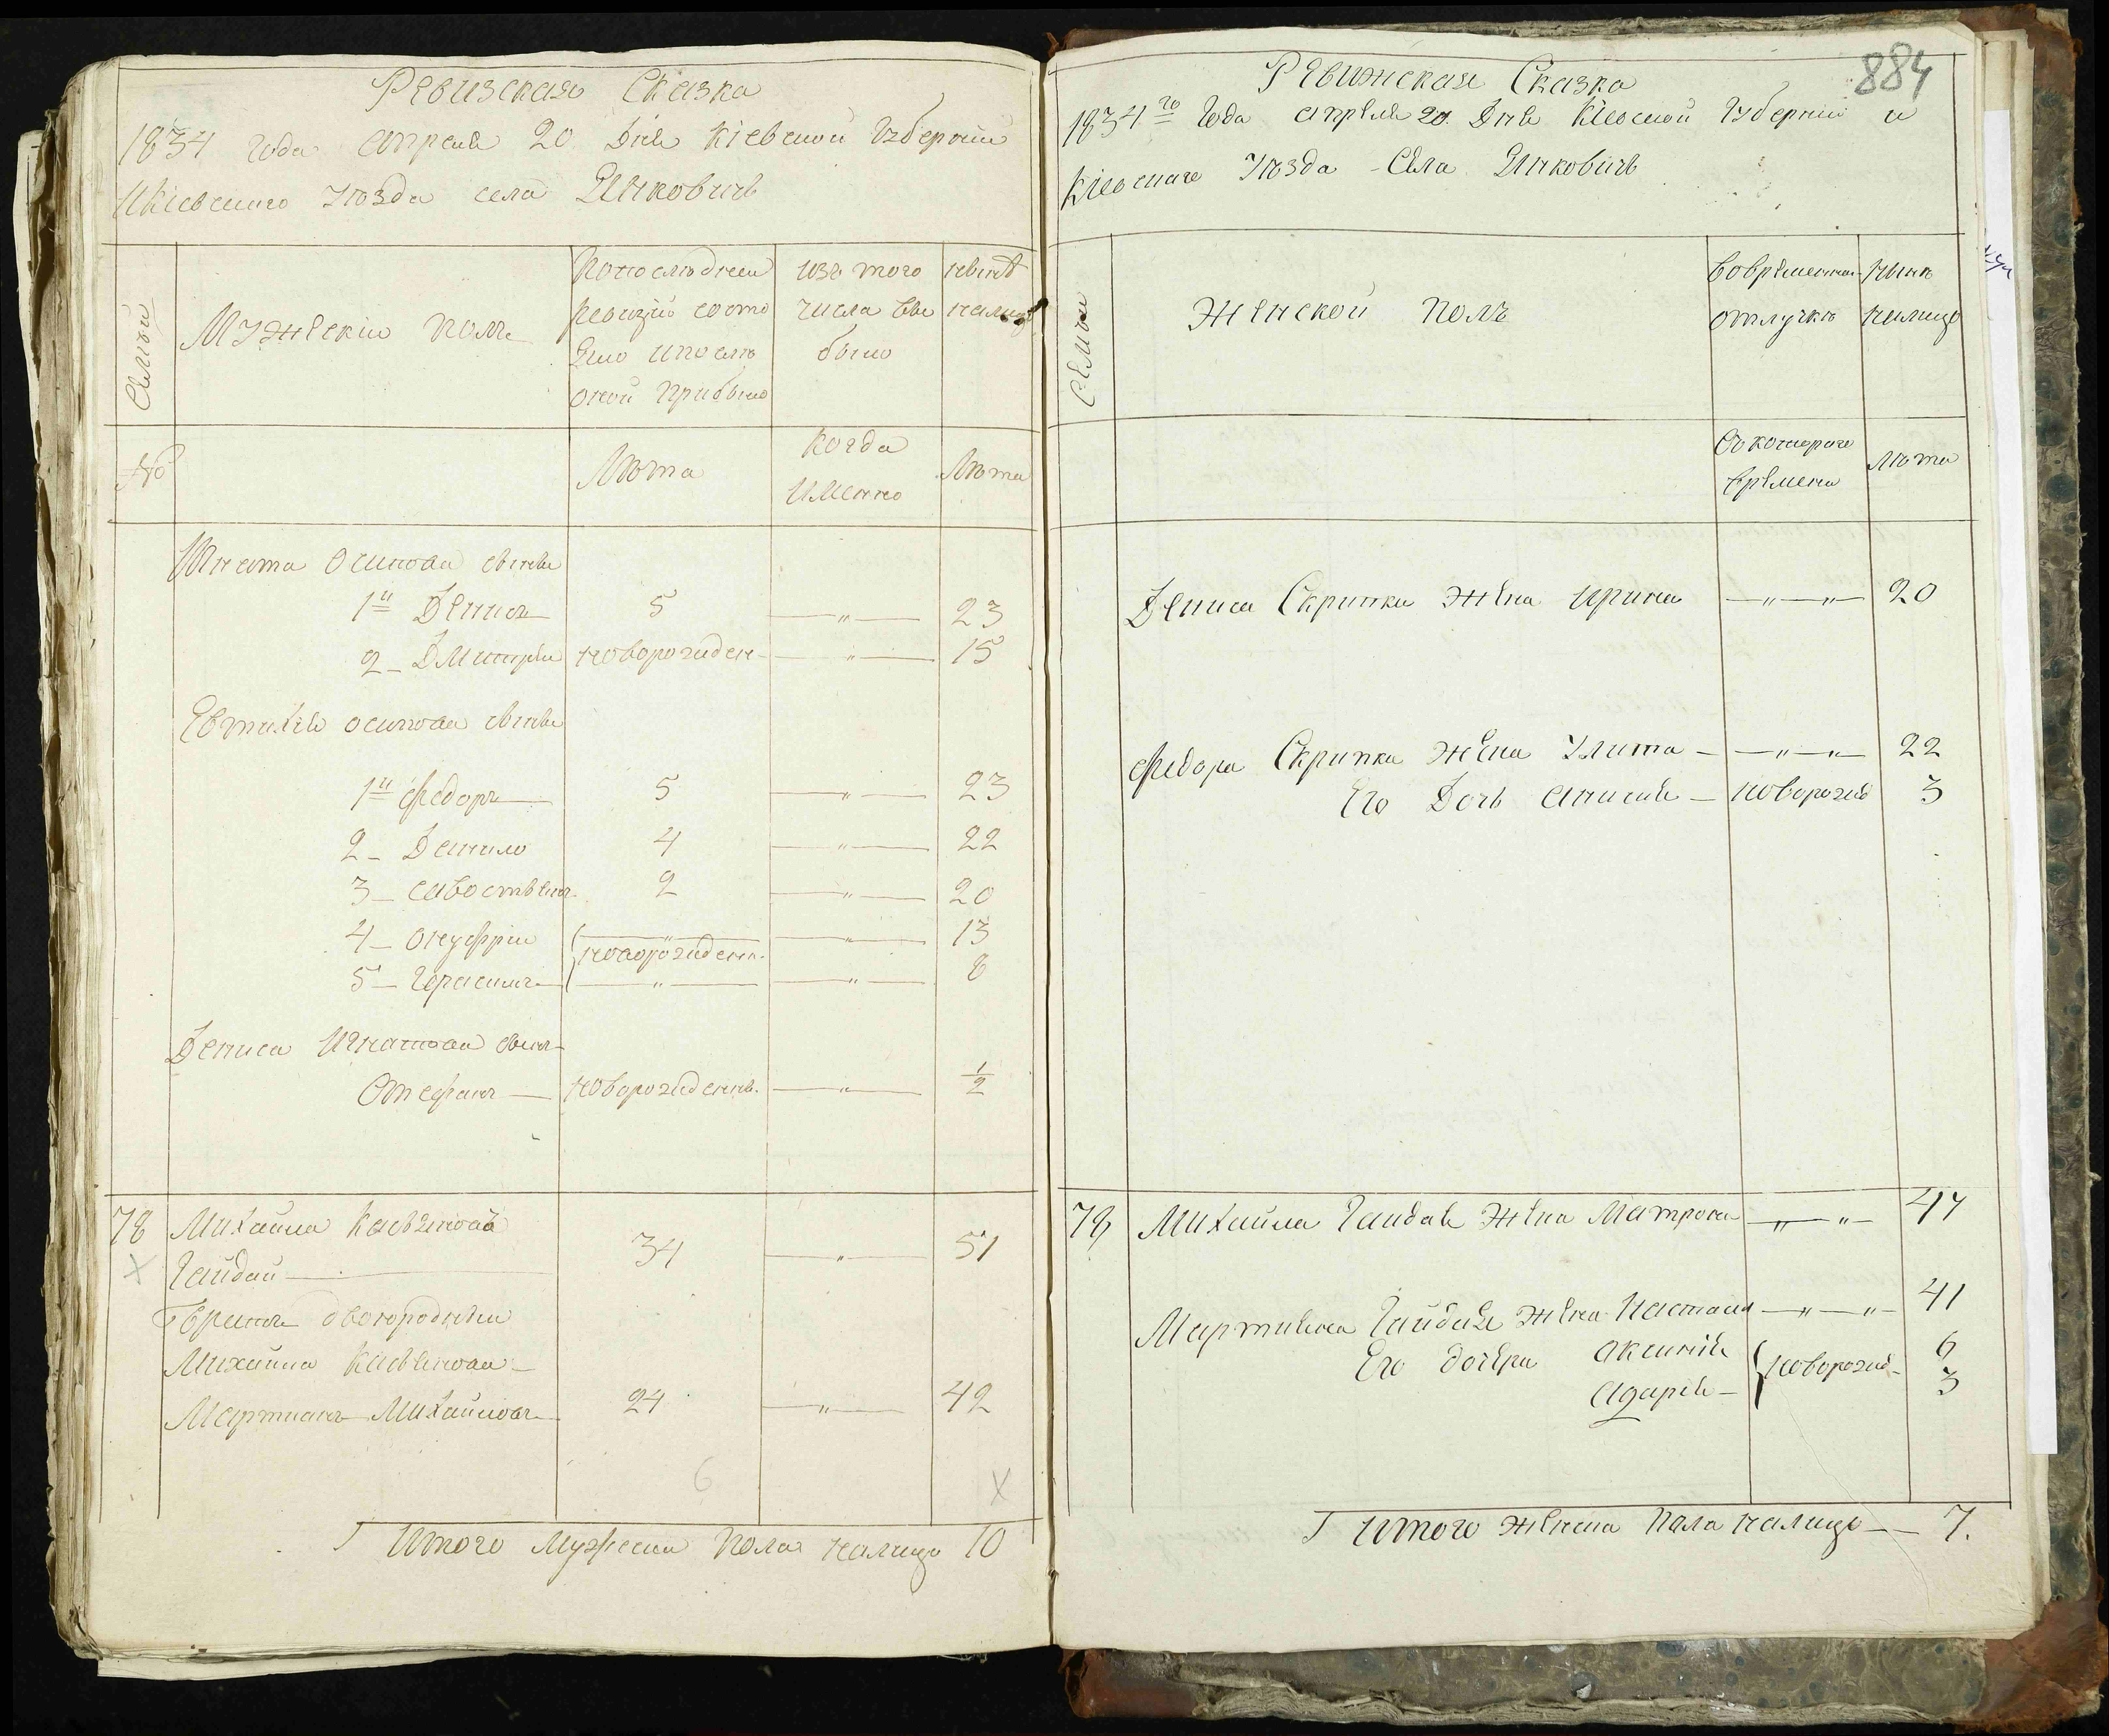 Ревизская Сказка
1834 года апреля 20 Дня Кіевской Губерніи
и Кіевскаго Уезда села Янковичъ
Семьи
Мужескій полъ
По последней
ревизіи состо
яло и после
оной прибыло
изъ того
числа вы
было
ныне
на лицо
№
Лета
Когда
Именно
Лета
Игната Осипова сынъи
1й Денисъ 5 —"— 23
2 - Дмитрій новорожден- —"— 15
Евтихія осипова сынъи
1й Федоръ 5 —"— 23
2 - Данило 4 —"— 22
3 - савостьянъ 2 —"— 20
4 - Онуфрій —"— —"— 13
новорожденн.
5 - Герасимъ —"— —"— 8
Дениса Игнатова сынъ
Стефанъ — новорожденны. —"— 1/2
78 Михайла Касьяновъ
Гайдай — 34 —"— 51
двоюродный
Михайла Касьянова
Мартиянъ Михайловъ 24 —"— 42
6
X
Итого Мужеска Пола на лицо 10
884
Ревижская Сказка
1834го Года апреля 20 Дня Кіевской Губерніи и
Кіевскаго Уезда Села Янковичъ
Семьи
Женской полъ
Во временной
отлучке
ныне
на лицо
Съ котораго
времени
лета
Дениса Скрипки жена Ирина —"—"— 20
Федора Скрипки жена Улита —"—"— 22
Его Дочь Анисия — новорожд 3
78 Михайла Гайдая жена Матрона —"—"— 47
Мартияна Гайдая жена Настасия —"—"— 41
Его дочери Аксинія 6
новорожд-
Адарія 3
Итого женска пола на лицо — 7.